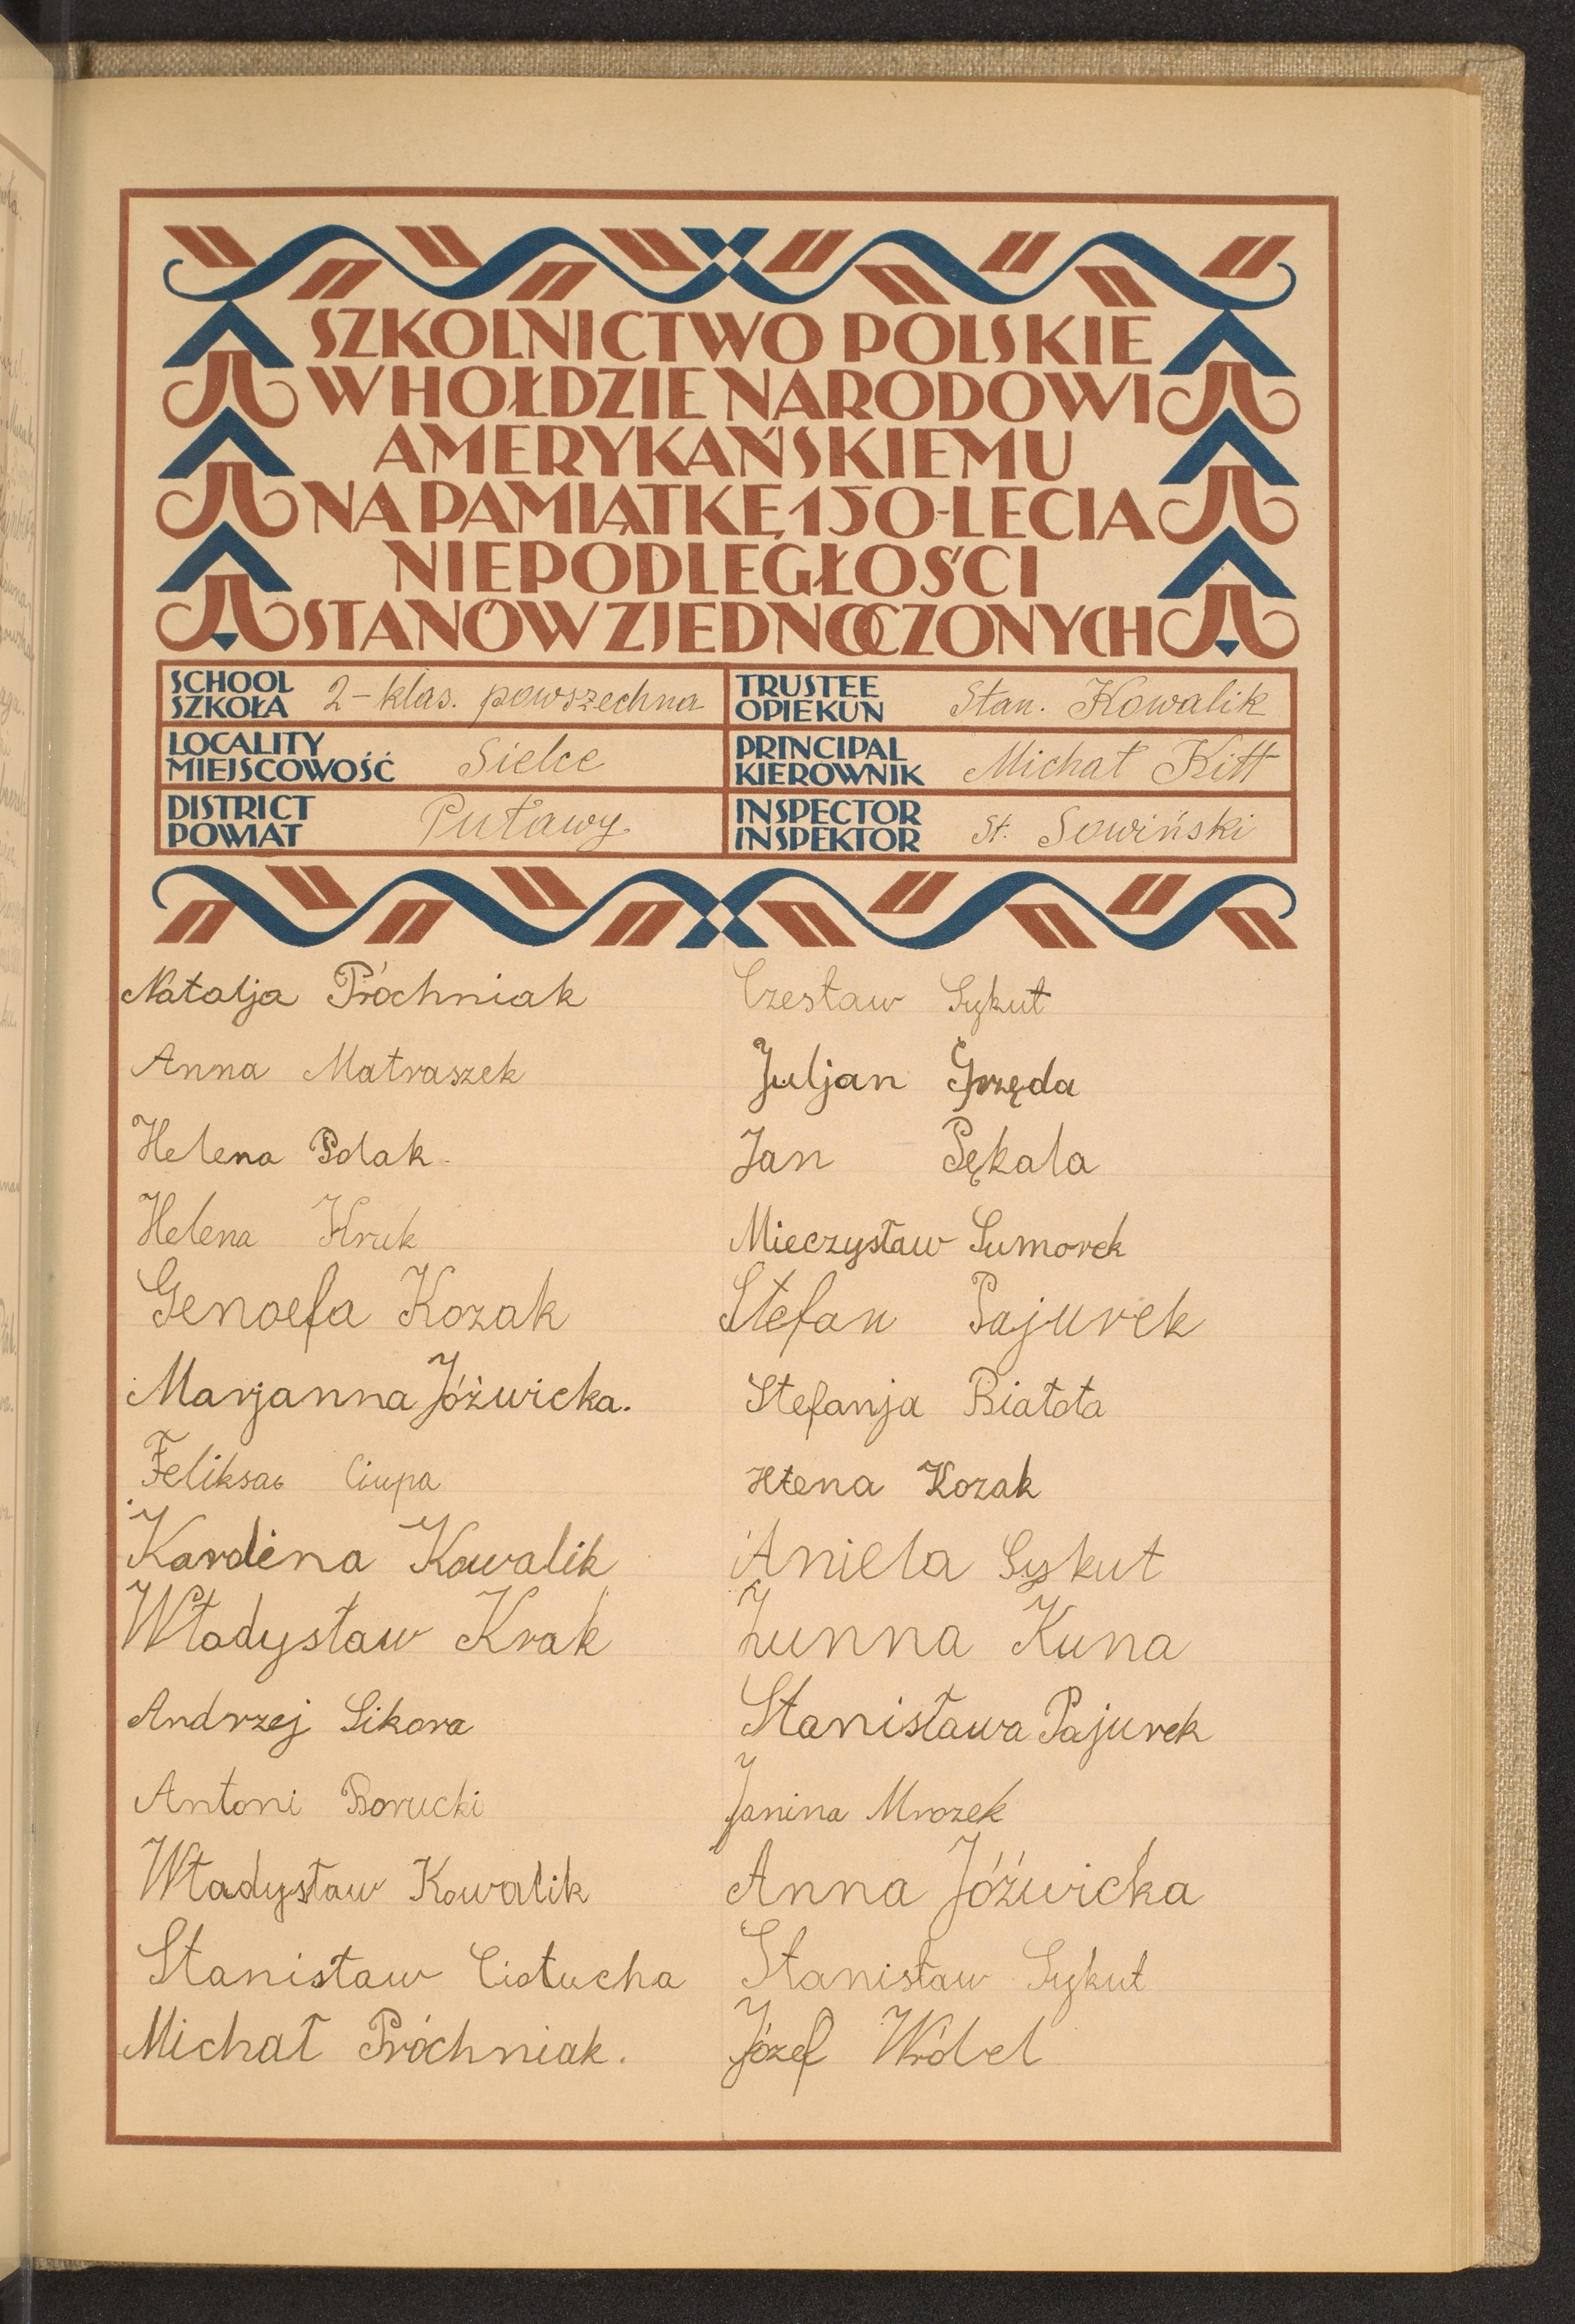 SZKOLNICTWO POLSKIE
W HOŁDZIE NARODOWI
AMERYKAŃSKIEMU
NA PAMIĄTKĘ 150-LECIA
NIEPODLEGŁOŚCI
STANÓW ZJEDNOCZONYCH
SCHOOL
SZKOŁA 2-klas. powszechna
TRUSTEE
OPIEKUN Stan. Kowalik
LOCALITY
MIEJSCOWOŚĆ Sielce
PRINCIPAL
KIEROWNIK Michał Kitt
DISTRICT
POWIAT Puławy.
INSPECTOR
INSPEKTOR St. Sowiński
Natalja Próchniak
Anna Matraszek
Helena Polak
Helena Kruk
Genoefa Kozak
Marjanna Jóźwicka.
Feliksa Ciupa
Karolina Kowalik
Władysław Krak
Andrzej Sikora
Antoni Borucki
Władysław Kowalik
Stanisław Ciotucha
Michał Próchniak.
Czesław Sykut
Juljan Grzęda
Jan Pękala
Mieczysław Sumorek
Stefan Pajurek
Stefanja Białota
Kozak
Aniela Sykut
Kuna
Stanisława Pajurek
Janina Mrozek
Anna Jóźwicka
Stanisław Sykut
Józef Wróbel